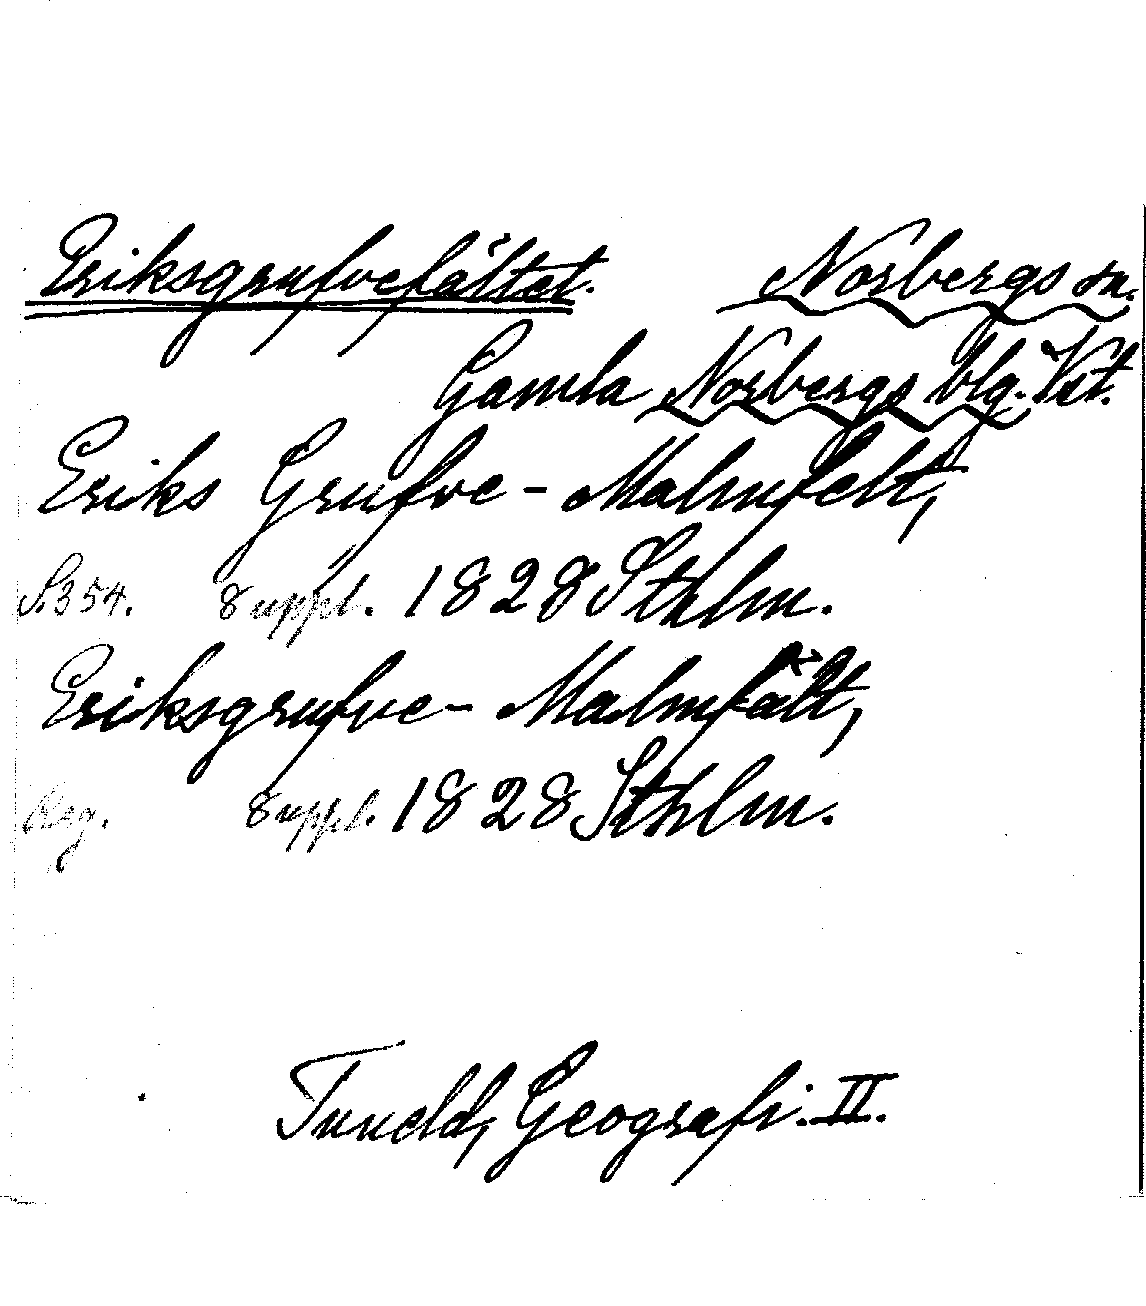 Eriksgrufvefältet. Norbergs sn.
Gamla Norbergs blg. Vst.
Eriks Grufve-Malmfelt,
S.354. Suppl. 1828 Sthlm.
Eriksgrufve-Malmfält,
Reg. Suppl. 1828 Sthlm.
Tuneld, Geografi. II.